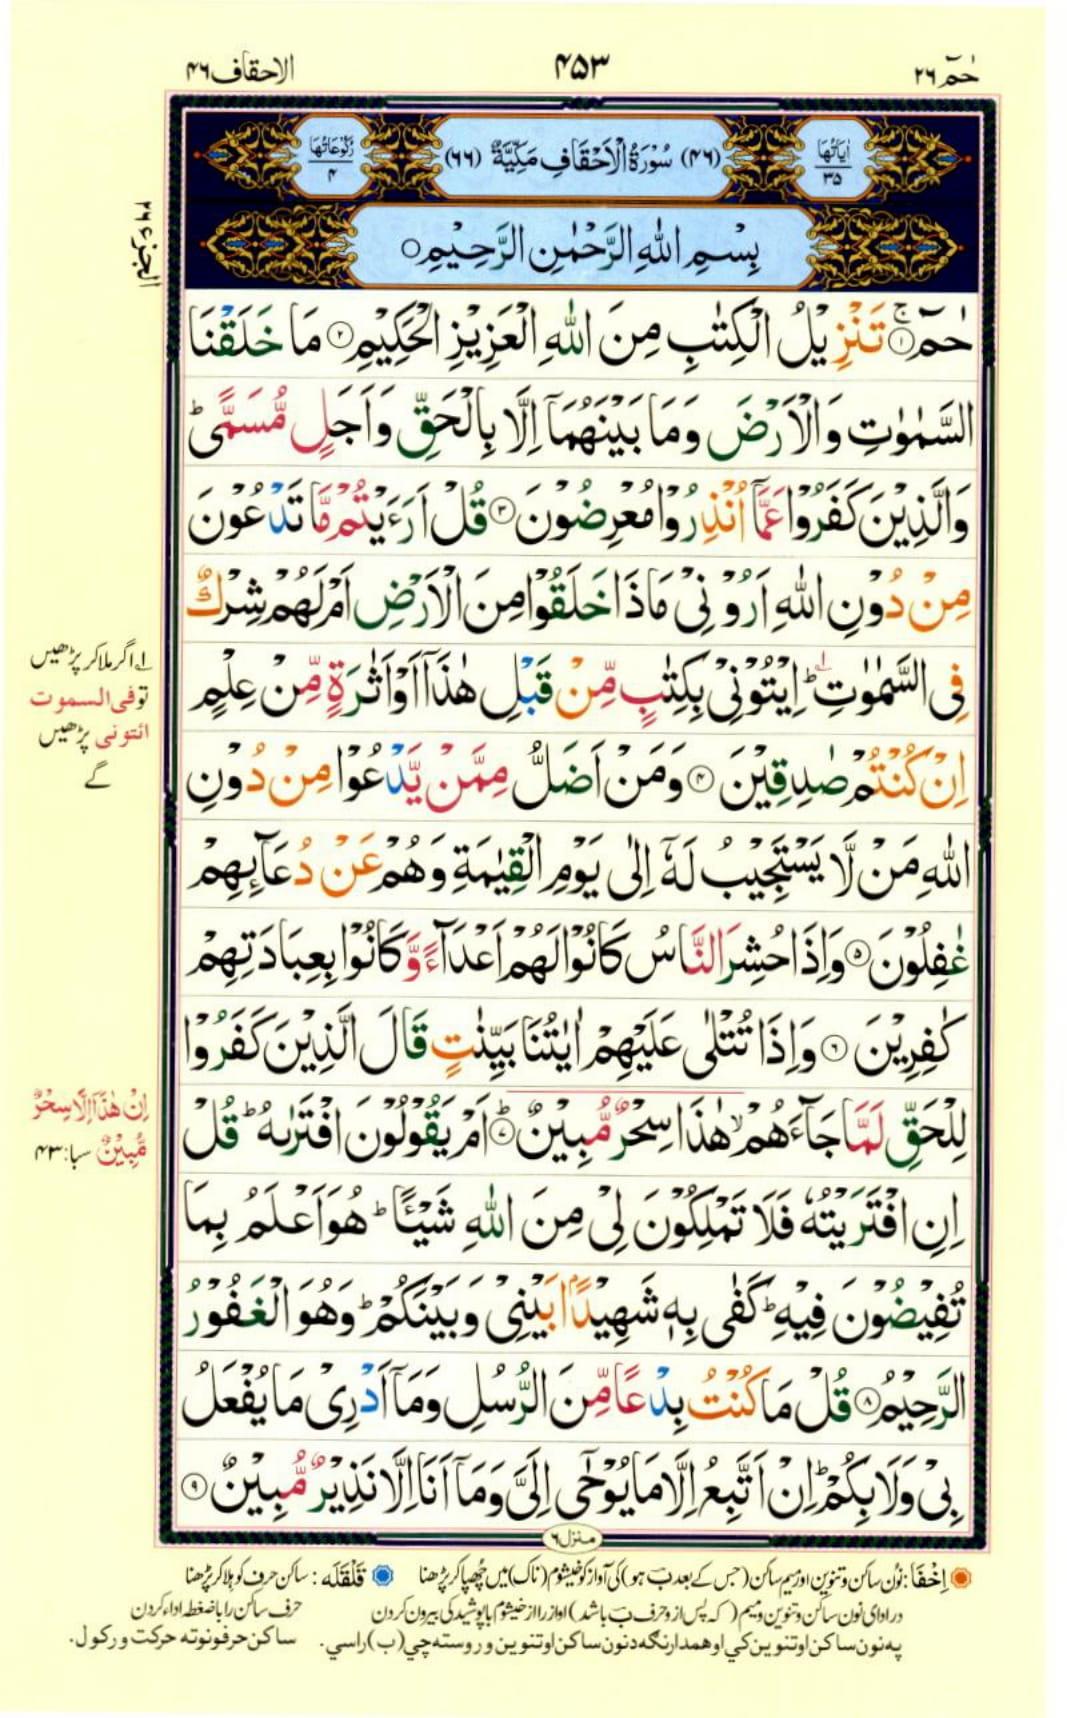 حٰمٓ ٢٦
٤٥٣
الاحقاف ٤٦
اٰیَاتُهَا ٣٥
(٤٦) سُوْرَةُ الْاَحْقَافِ مَكِّیَّةٌ (٦٦)
رُكُوْعَاتُهَا ٤
بِسْمِ اللهِ الرَّحْمٰنِ الرَّحِیْمِ○
الجزء ٢٦
حٰمٓ ۚ‏﴿١﴾ تَنْزِیْلُ الْكِتٰبِ مِنَ اللّٰهِ الْعَزِیْزِ الْحَكِیْمِ ﴿٢﴾ مَا خَلَقْنَا
السَّمٰوٰتِ وَالْاَرْضَ وَمَا بَیْنَهُمَاۤ اِلَّا بِالْحَقِّ وَاَجَلٍ مُّسَمًّیؕ
وَالَّذِیْنَ كَفَرُوْا عَمَّاۤ اُنْذِرُوْا مُعْرِضُوْنَ ﴿٣﴾ قُلْ اَرَءَیْتُمْ مَّا تَدْعُوْنَ
مِنْ دُوْنِ اللّٰهِ اَرُوْنِیْ مَاذَا خَلَقُوْا مِنَ الْاَرْضِ اَمْ لَهُمْ شِرْكٌ
فِی السَّمٰوٰتِؕ اِیْتُوْنِیْ بِكِتٰبٍ مِّنْ قَبْلِ هٰذَاۤ اَوْ اَثٰرَةٍ مِّنْ عِلْمٍ
اِنْ كُنْتُمْ صٰدِقِیْنَ ﴿٤﴾ وَمَنْ اَضَلُّ مِمَّنْ یَّدْعُوْا مِنْ دُوْنِ
اللّٰهِ مَنْ لَّا یَسْتَجِیْبُ لَهٗۤ اِلٰی یَوْمِ الْقِیٰمَةِ وَهُمْ عَنْ دُعَآىِٕهِمْ
غٰفِلُوْنَ ﴿٥﴾ وَاِذَا حُشِرَ النَّاسُ كَانُوْا لَهُمْ اَعْدَآءً وَّكَانُوْا بِعِبَادَتِهِمْ
كٰفِرِیْنَ ﴿٦﴾ وَاِذَا تُتْلٰی عَلَیْهِمْ اٰیٰتُنَا بَیِّنٰتٍ قَالَ الَّذِیْنَ كَفَرُوْا
لِلْحَقِّ لَمَّا جَآءَهُمْ ۙ هٰذَا سِحْرٌ مُّبِیْنٌ ؕ﴿٧﴾ اَمْ یَقُوْلُوْنَ افْتَرٰىهُؕ قُلْ
اِنِ افْتَرَیْتُهٗ فَلَا تَمْلِكُوْنَ لِیْ مِنَ اللّٰهِ شَیْـًٔاؕ هُوَ اَعْلَمُ بِمَا
تُفِیْضُوْنَ فِیْهِؕ كَفٰی بِهٖ شَهِیْدًۢا بَیْنِیْ وَبَیْنَكُمْؕ وَهُوَ الْغَفُوْرُ
الرَّحِیْمُ ﴿٨﴾ قُلْ مَا كُنْتُ بِدْعًا مِّنَ الرُّسُلِ وَمَاۤ اَدْرِیْ مَا یُفْعَلُ
بِیْ وَلَا بِكُمْؕ اِنْ اَتَّبِعُ اِلَّا مَا یُوْحٰۤی اِلَیَّ وَمَاۤ اَنَا اِلَّا نَذِیْرٌ مُّبِیْنٌ ﴿٩﴾
لے اگر ملا کر پڑھیں
تو فی السموت
ائتونی پڑھیں
گے
اِنْ هٰذَاۤ اِلَّا سِحْرٌ
مُّبِیْنٌ سبا: ٤٣
منزل ٦
اِخْفَا: نُون ساکن و تنوین اور میم ساکن (جس کے بعد ب ہو) کی آواز کو خیشوم (ناک) میں چُھپا کر پڑھنا قَلْقَلَه: ساکن حرف کو ہلا کر پڑھنا
در ادای نون ساکن و تنوین و میم (که پس از و حرف ب باشد) اواز را از خیشوم با پوشیدگی بیرون کردن حرف ساکن را با ضغطه اداء کردن
په نون ساکن او تنوین کي او همدارنګه د نون ساکن او تنوین وروسته چي (ب) راسي. ساکن حرفونو ته حرکت ورکول.